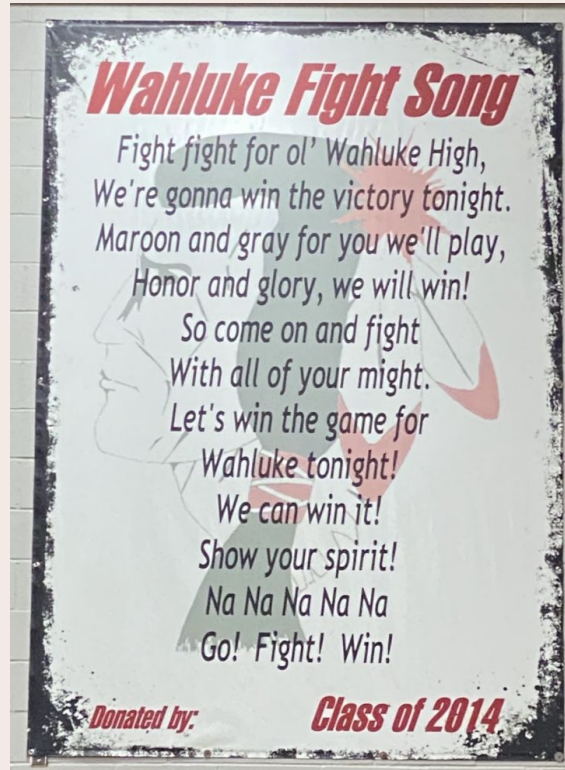 Wahluke Fight Song
Fight fight for ol' Wahluke High,
We're gonna win the victory tonight.
Maroon and gray for you we'll play,
Honor and glory, we will win!
So come on and fight
With all of your might.
Let's win the game for
Wahluke tonight!
We can win it!
Show your spirit!
Na Na Na Na Na
Go! Fight! Win!
Donated by: Class of 2014